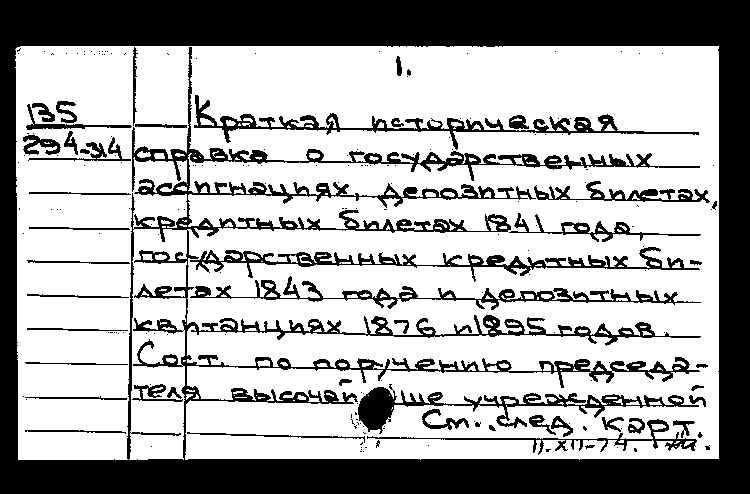 1.
135 Краткая историческая
294-314 справка о государственных
ассигнациях, депозитных билетах,
кредитных билетах 1841 года,
государственных кредитных би-
летах 1843 года и депозитных
квитанциях 1876 и 1895 годов.
Сост. по поручению председа-
теля высочайше учрежденной
См. след. карт.
11.XII-74.